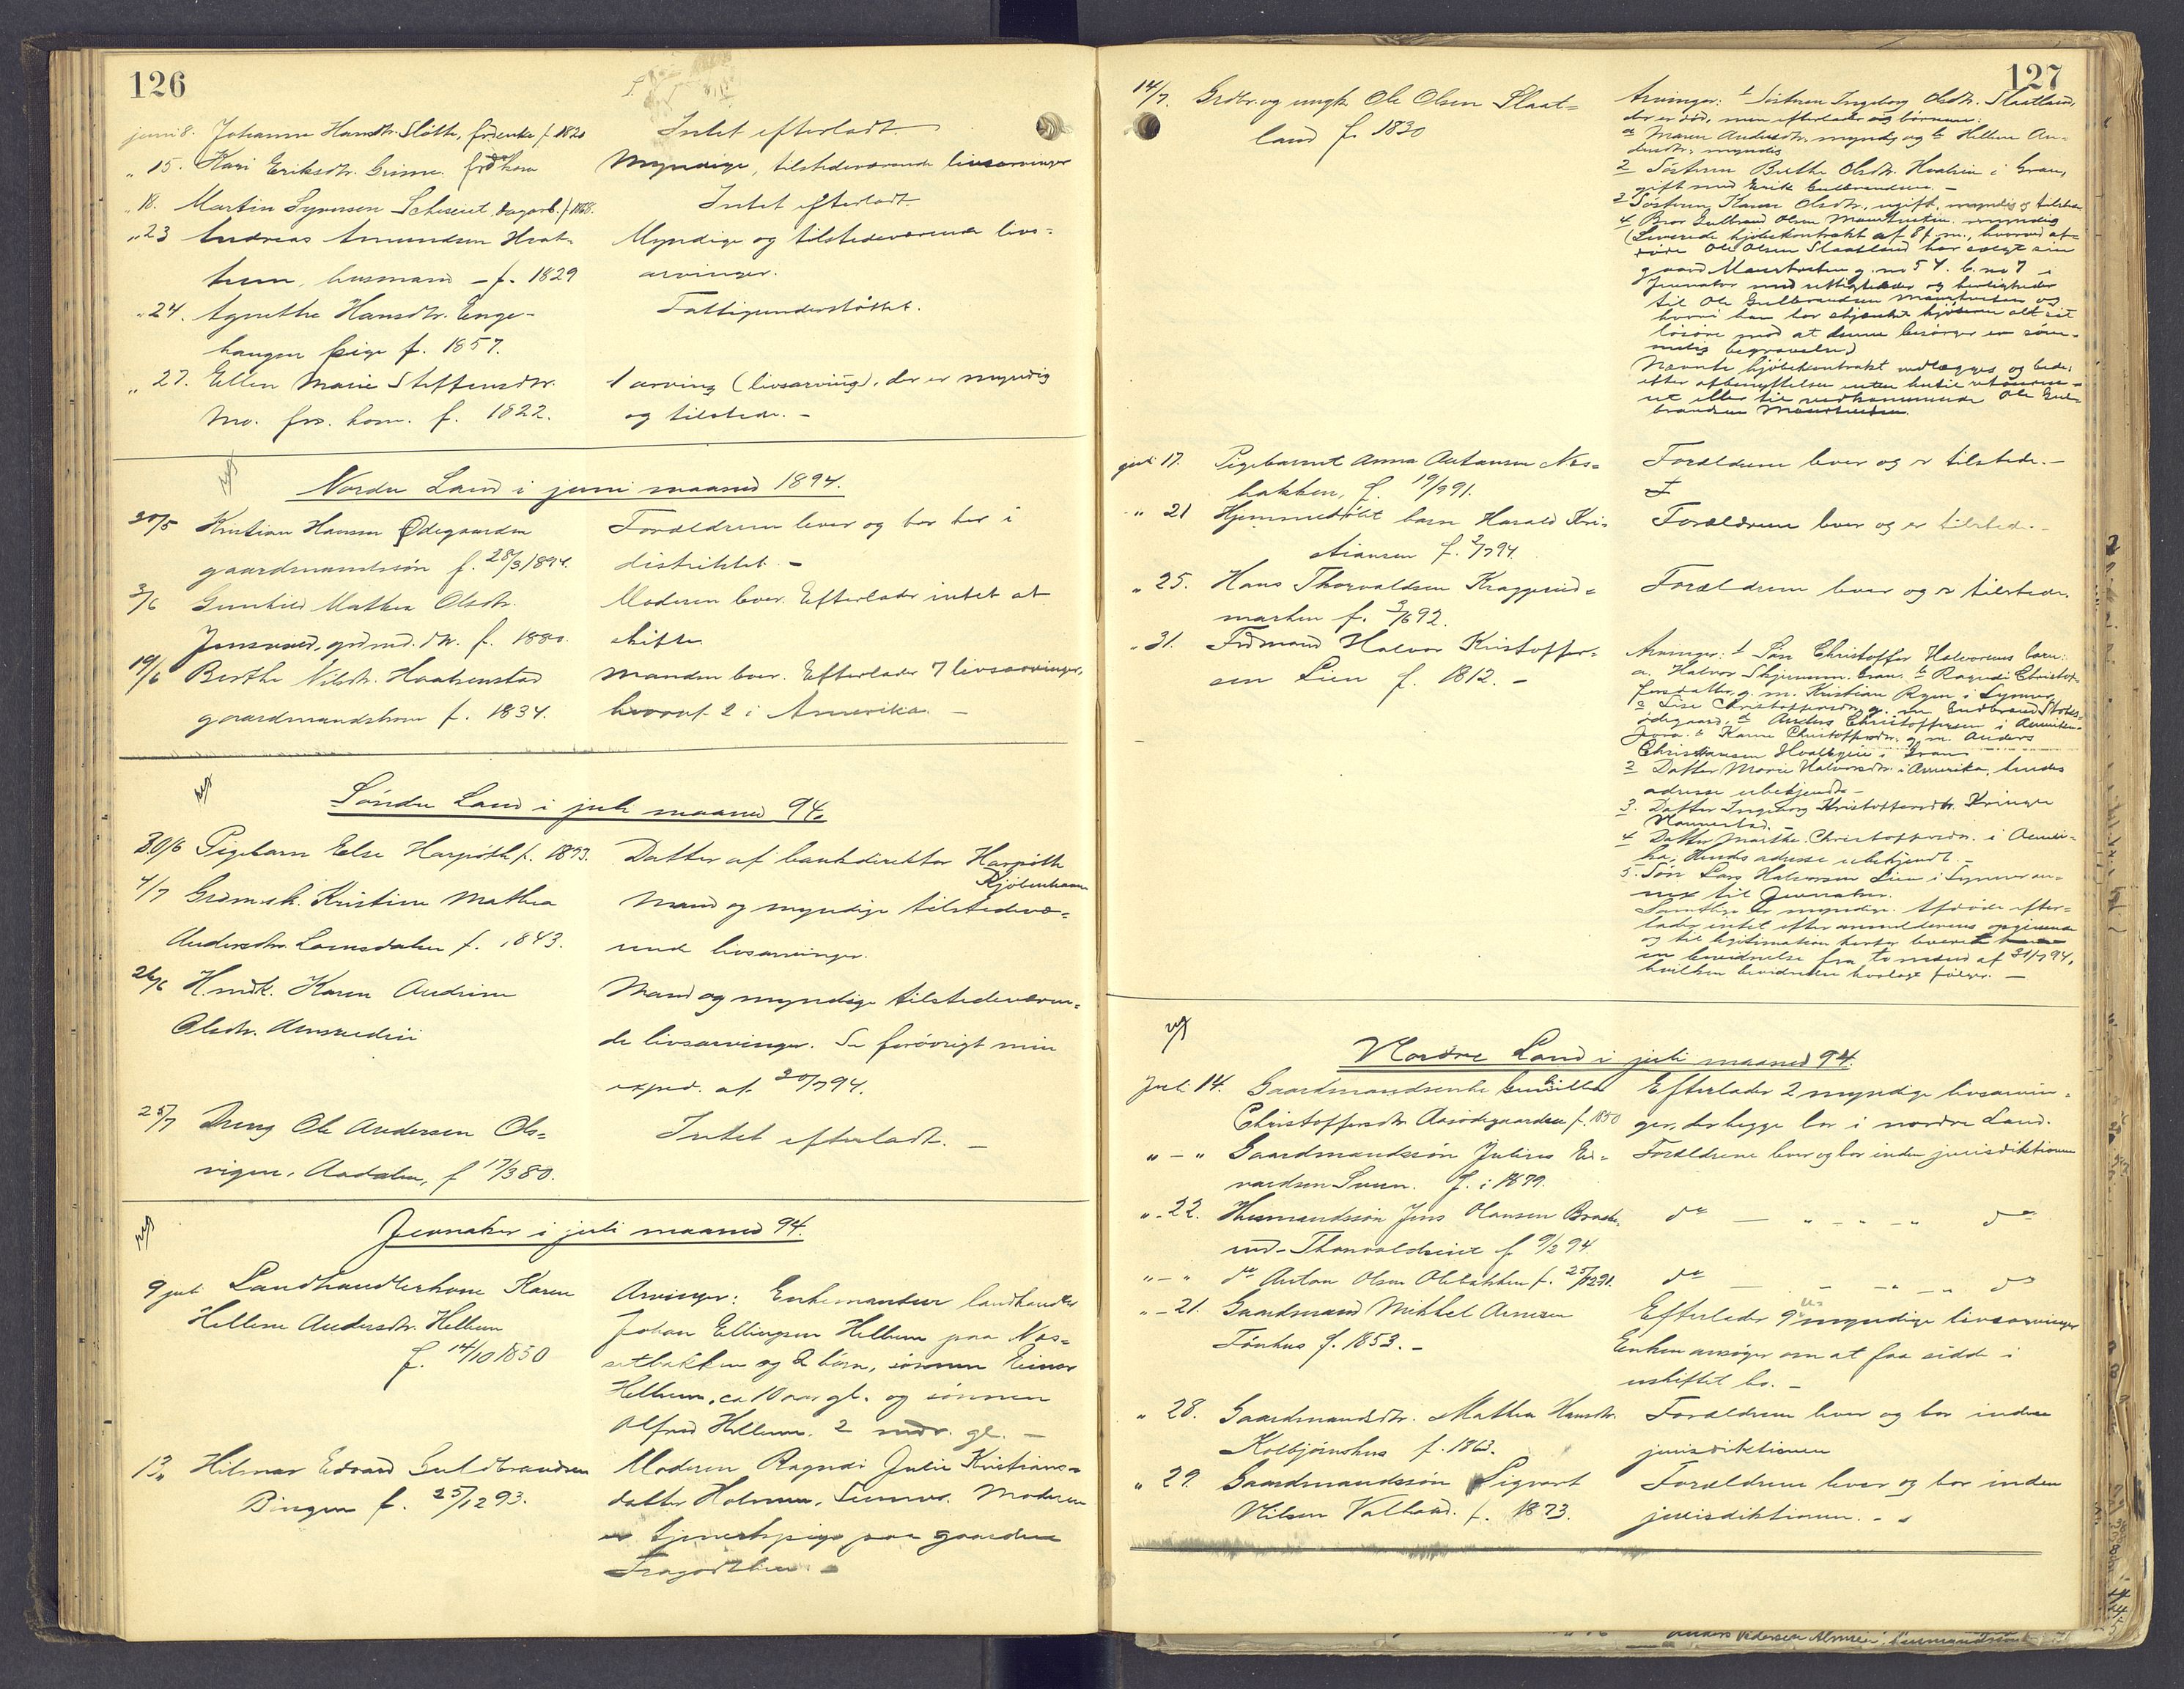 126
juni 8. Johanne Hansdtr. Sløtte, frdenke f. 1820 Intet efterladt.
" 15. Kari Eriksdtr. Grime frdkone Myndige, tilstedeværende livsarvinger
" 18. Martin Syversen dagarb. f. 1868. Intet efterladt.
" 23 Andreas Amundsen Hval- Myndige og tilstedeværende livs-
hum, husmand - f. 1829 arvinger.
" 24. Agnethe Hansdtr. Enge- Fattigunderstøttet.
haugen pige f. 1857.
" 27. Ellen Marie Steffensdtr. 1 arving (livsarving), der er myndig
Mo. frs. kone. f. 1822. og tilstede. -
Nordre Land i juni maaned 1894.
30/5 Kristian Hansen Ødegaarden Forældrene lever og bor her i
gaardmandssøn f. 28/3 1894. distriktet. -
3/6 Gunhild Mathea Olsdtr. Moderen lever. Efterlader intet at
grdmd. dtr. f. 1880. skifte.
19/6 Berthe Nilsdtr. Haakenstad Manden lever. Efterlader 7 livsarvinger,
gaardmandskone f. 1834. hvoraf 2 i Amerika. -
Søndre Land i juli maaned 94.
30/6 Pigebarn Else Harpøth f. 1893. Datter af bankdirektør Harpøth
Kjøbenhavn
4/7 Grdmsk. Kristine Mathea Mand og myndige tilstedevæ-
Andersdtr. Lomsdalen f. 1843. rende livsarvinger.
26/6 H.mdk. Karen Andrine Mand og myndige tilstedeværen-
Olsdtr. de livsarvinger. Se forøvrigt min
exped. af 20/7 94.
25/7 Dreng Ole Andersen Ols- Intet efterladt. -
vigen, Aadalen, f 17/3 80.
Jevnaker i juli maaned 94.
9 juli Landhandlerkone Karen Arvinger: Enkemanden landhandler
Hellene Andersdtr. Hellum Johan Ellingsen Hellum paa Næs-
f. 14/10 1850 setbakken og 2 børn, sønnen Einar
Hellum, ca 10 aar gl. og sønnen
Alfred Hellum. 2 mdr. gl. -
13 " Hilmar Edvard Guldbrandsen Moderen Ragndi Julie Kristians-
Bingen f. 25/12 93. datter Holmen, Moderen
er tjenestepige paa gaarden

127
14/7. Grdbr. og ungk. Ole Olsen Slaat- Arvinger: 1 Søsteren Ingeborg Olsdtr. Slaatland,
land f. 1830 der er død, men efterlader sig børnene:
a Maren Andersdtr. myndig og b Hellene An-
dersdtr. myndig
2 Søsteren Berthe Olsdtr. Hvalein i Gran,
gift med Erik Gulbrandsen. -
3 Søsteren Karen Olsdtr., ugift, myndig og tilstede
4 Bror Gulbrand Olsen myndig
(Leverede kjøbekontrakt af 8 f.m., hvorved af-
døde Ole Olsen Slaatland har solgt sin
gaard g. no 54. b. no 7 i
Jevnaker med rettigheder og herligheder
til Ole Gulbrandsen og
hvori han har skjænket kjøberen alt sit
løsøre mod at denne besørger en søm-
melig begravelse)
Nævnte kjøbekontrakt vedlægges og bedes
efter afbenyttelsen enten hertil returne-
ret eller til vedkommende Ole Gul-
brandsen
juli 17. Pigebarnet Anna Antonsen Næs- Forældrene lever og er tilstede. -
bakken, f. 19/9 91.
" 21 Hjemmedøbt barn Harald Kri- Forældrene lever og er tilstede. -
stiansen f. 2/7 94.
" 25. Hans Thorvaldsen Kraggerud- Forældrene lever og er tilstede.
marken f. 3/6 92.
" 31. Frdmand Halvor Kristoffer- Arvinger: 1 Søn Christoffer Halvorsens barn:
sen Lien f. 1812. - a. Halvor Skjerven. Gran. b Ragndi Christof-
fersdatter, g. m. Kristian Ryen i
c Lise Christoffersdtr g. m. Gudbrand
ødegaard, d Anders Christoffersen i Amerika.
e Karen Christoffersdtr. g. m. Anders
Christiansen i Gran
2 Datter Marie Halvorsdtr. i Amerika, hendes
adresse ubekjendt -
3. Datter Ingeborg Kristoffersdtr.
4 Datter Marthe Christoffersdtr. i Ameri-
ka, Hendes adresse ubekjendt. -
5. Søn Lars Halvorsen Lien i an-
nex til Jevnaker.
Samtlige er myndige. Afdøde efter-
lader intet efter anmelderens opgivende
og til legitimation herfor leveret
en bevidnelse fra to mænd af 31/7 94,
hvilken bevidnelse hoslagt følger. -
Nordre Land i juli maaned 94.
Juli 14. Gaardmandsenke Gunild Efterlader 2 myndige livsarvin-
Christoffersdtr f. 1850 ger, der begge bor i nordre Land.
" - " Gaardmandssøn Julius Ed- Forældrene lever og bor inden jurisdiktionen
vardsen f. i 1879.
" - 22. Husmandssøn Jens Hansen do - " - " - " do
f 9/2 94.
" - " do Anton Olsen Olebakken f. do - " - " - " do
" - 21. Gaardmand Mikkel Arnesen Efterlader 9 umyndige livsarvinger
Tønhus f. 1853. - Enken ansøger om at faa sidde i
uskiftet bo. -
" 28. Gaardmandsdtr. Mathea Hansdtr. Forældrene lever og bor inden
Kolbjørnshus f. 1863. jurisdiktionen
" 29. Gaardmandssøn Sigvart Forældrene lever og bor inden
Nilsen f. 1873. jurisdiktionen. -